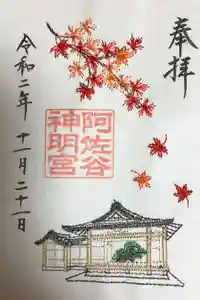 奉拝
阿佐谷
神明宮
令和二年十一月二十一日